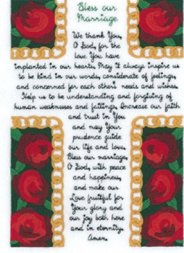 Bless our
Marriage
We thank You,
O God, for the
love You have
implanted in our hearts. May it always inspire us
to be kind in our words, considerate of feelings,
and concerned for each other's needs and wishes.
Help us to be understanding and forgiving of
human weaknesses and failings. Increase our faith
and trust in You
and may Your
prudence guide
our life and love.
Bless our marriage
O God, with peace
and happiness,
and make our
love fruitful for
Your glory and
our joy both here
and in eternity.
Amen.